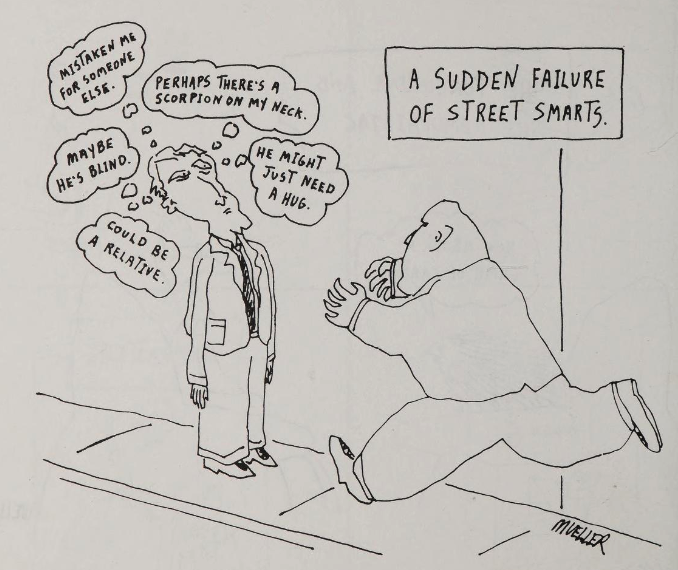 MISTAKEN ME
FOR SOMEONE
ELSE.
PERHAPS THERE'S A
SCORPION ON MY NECK.
MAYBE
HE'S BLIND.
HE MIGHT
JUST NEED
A HUG.
COULD BE
A RELATIVE.
A SUDDEN FAILURE
OF STREET SMARTS.
MUELLER